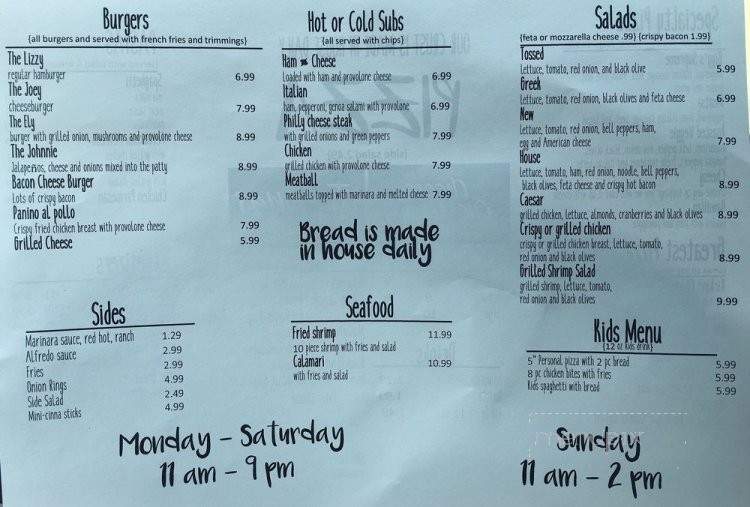 Burgers
{all burgers and served with french fries and trimmings}
The Lizzy
regular hamburger 6.99
The Joey
cheeseburger 7.99
The Ely
burger with grilled onion, mushrooms and provolone cheese 8.99
The Johnnie
Jalapeños, cheese and onions mixed into the patty 8.99
Bacon Cheese Burger
Lots of crispy bacon 8.99
Panino al pollo
Crispy fried chicken breast with provolone cheese 7.99
Grilled Cheese 5.99
Hot or Cold Subs
{all served with chips}
Ham & Cheese
Loaded with ham and provolone cheese 6.99
Italian
ham, pepperoni, genoa salami with provolone 6.99
Philly cheese steak
with grilled onions and green peppers 7.99
Chicken
grilled chicken with provolone cheese 7.99
Meatball
meatballs topped with marinara and melted cheese 7.99
Bread is made
in house daily
Salads
{feta or mozzarella cheese .99} {crispy bacon 1.99}
Tossed
Lettuce, tomato, red onion, and black olive 5.99
Greek
Lettuce, tomato, red onion, black olives and feta cheese 6.99
New
Lettuce, tomato, red onion, bell peppers, ham,
egg and American cheese 7.99
House
Lettuce, tomato, ham, red onion, noodle, bell peppers,
black olives, feta cheese and crispy hot bacon 8.99
Caesar
grilled chicken, lettuce, almonds, cranberries and black olives 8.99
Crispy or grilled chicken
crispy or grilled chicken breast, lettuce, tomato,
red onion and black olives 8.99
Grilled Shrimp Salad
grilled shrimp, lettuce, tomato,
red onion and black olives 9.99
Sides
Marinara sauce, red hot, ranch 1.29
Alfredo sauce 2.99
Fries 2.99
Onion Rings 4.99
Side Salad 2.49
Mini-cinna sticks 4.99
Seafood
Fried shrimp 11.99
10 piece shrimp with fries and salad
Calamari 10.99
with fries and salad
Kids Menu
{12 oz kids drink}
5" Personal pizza with 2 pc bread 5.99
8 pc chicken bites with fries 5.99
Kids spaghetti with bread 5.99
Monday - Saturday
11 am - 9 pm
Sunday
11 am - 2 pm